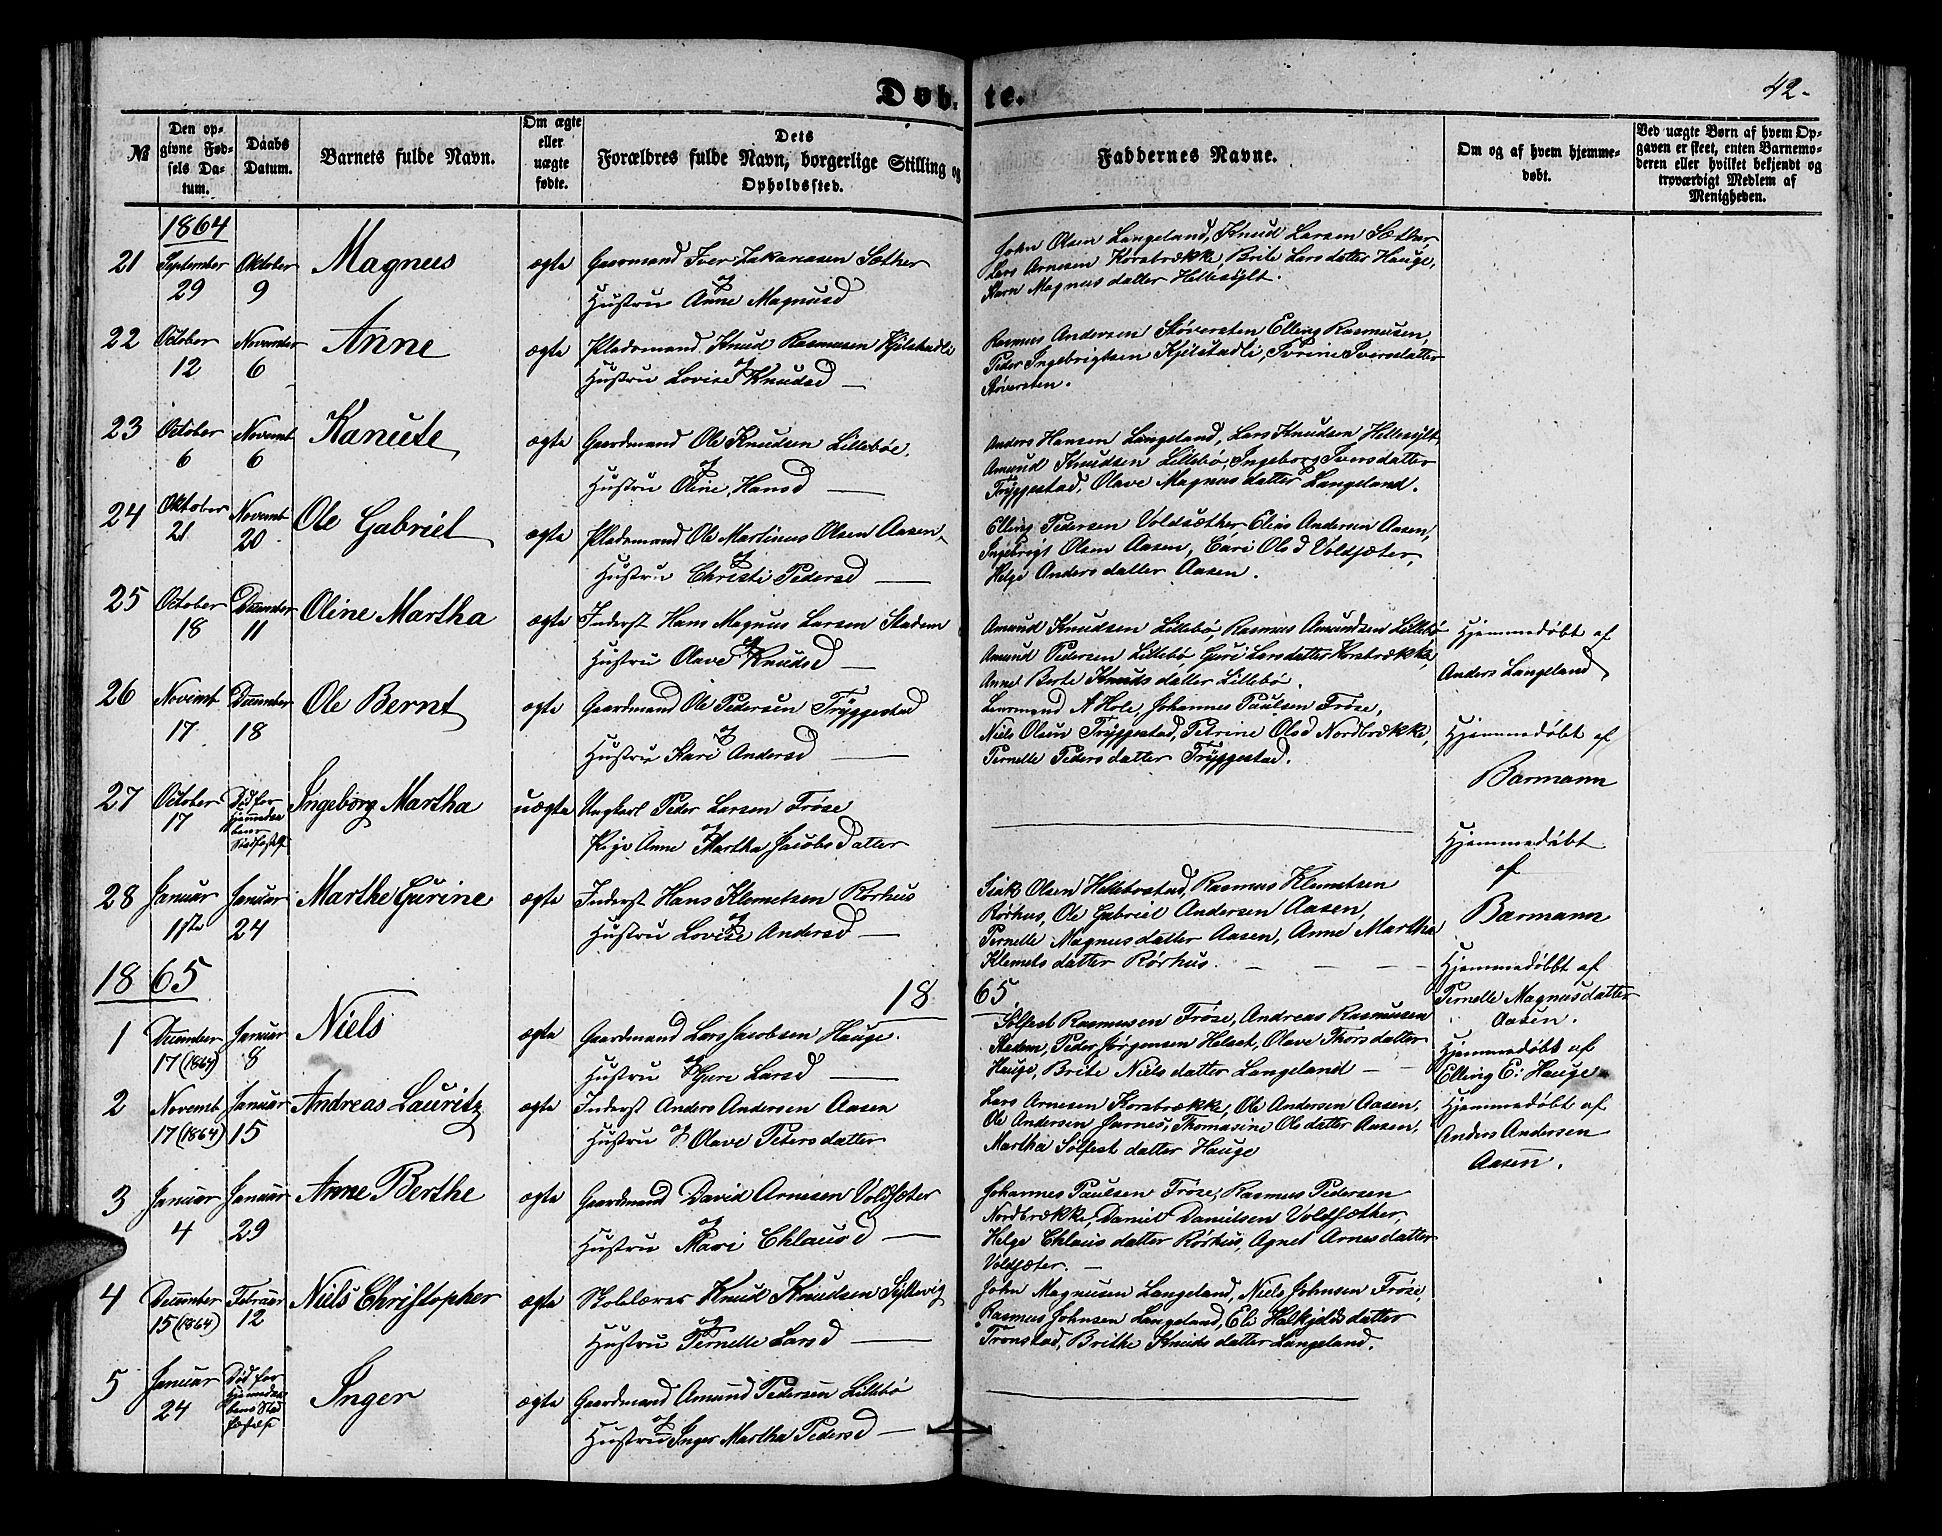 Døb-
te.
42.
№
Den op-
givne Fød-
sels Da-
tum.
Daabs
Datum.
Barnets fulde Navn.
Om ægte
eller
uægte
fødte.
Dets
Forældres fulde Navn, borgerlige Stilling og
Opholdssted.
Faddernes Navne.
Om og af hvem hjemme-
døbt.
Ved uægte Børn af hvem Op-
gaven er skeet, enten Barnemo-
deren eller hvilket bekjendt og
troværdigt Medlem af
Menigheden.
1864
21 September 29 Oktober 9 Magnus ægte Gaarmand Iver Zakariasen Sæther
og
Hustru Anne Magnusd
John Olsen Langeland, Knud Larsen Sæther
Lars Arnesen Korsbrække, Brite Larsdatter Hauge,
Karn Magnusdatter Hellesylt.
22 October 12 November 6 Anne ægte Pladsmand Knud Rasmusen Kjelstadli
og
Hustru Lovise Knudsd —
Rasmus Andersen Støversten Elling Rasmusen,
Peder Ingebrigtsen Kjelstadli, Sørine Iversdatter
Støversten.
23 October 6 Novemt 6 Kanute ægte Gaardmand Ole Knudsen Lillebøe,
og
Hustru Oline Hansd —
Anders Hansen Langeland, Lars Knudsen Hellesylt
Amund Knudsen Lillebø, Ingeborg Iversdatter
Tryggestad, Olave Magnusdatter Langeland.
24 Oktober 21 Novembt 20 Ole Gabriel ægte Pladsmand Ole Martinus Olsen Aasen,
og
Hustru Christi Pedersd —
Elling Pedersen Voldsæther Elias Andersen Aasen,
Ingebrigt Olsen Aasen, Cari Olsd Voldsæter,
Helge Andersdatter Aasen.
25 October 18 December 11 Oline Martha ægte Inderst Hans Magnus Larsen Stadem
og
Hustru Olave Knudsd —
Amund Knudsen Lillebø, Rasmus Amundsen Lillebø
Amund Pedersen Lillebø, Guri Larsdatter Korsbrække,
Anne Berte Knutsdatter Lillebø.
Hjemmedøbt af
Anders Langeland
26 Novemt 17 December 18 Ole Bernt ægte Gaardmand Ole Pedersen Tryggestad
og
Hustru Kari Andersd —
Lensmand A Hole, Johannes Paulsen Frøse,
Niels Olsen Tryggestad, Petrine Olsd Nordbrække,
Pernelle Pedersdatter Tryggestad.
Hjemmedøbt af
Barmann
27 October 17 Død før Ingeborg Martha uægte Ungkarl Peder Larsen Frøse
og
Pige Anne Martha Jacobsdatter
Hjemmedøbt
af
Barmann
28 Januar 11te Januar 24 Marthe Gurine ægte Inderst Hans Klemetsen Rørhus
og
Hustru Lovise Andersd —
Olsen Hellebostad, Rasmus Klemetsen
Rørhus, Ole Gabriel Andersen Aasen,
Pernelle Magnusdatter Aasen, Anne Martha
Klemetsdatter Rørhus.
Hjemmedøbbt af
Pernelle Magnusdatter
Aasen.
1865
18 65
1 December 17 (1864) Januar 8 Niels ægte Gaardmand Lars Jacobsen Hauge.
Hustru og Gure Larsd —
Solfest Rasmusen Frøse, Andreas Rasmusen
Stadem, Peder Jørgensen Helset, Olave Thorsdatter
Hauge, Brite Nielsdatter Langeland —
Hjemmedøbt af
Elling E. Hauge
2 Novemb 17 (1864) Januar 15 Andreas Lauritz ægte Inderst Anders Andersen Aasen
Hustru og Olave Petersdatter
Lars Arnesen Korsbrække, Ole Andersen Aasen,
Ole Andersen Jarnes, Thomasine Olsdatter Aasen,
Martha Solfestdatter Hauge
Hjemmedøbt af
Anders Andersen
Aasen.
3 Januar 4 Januar 29 Anne Berthe ægte Gaardmand David Arnesen Voldsæter
og
Hustru Mari Chlausd —
Johannes Paulsen Frøse, Rasmus Pedersen
Nordbrække, Daniel Danielsen Voldsæther,
Helge Chlausdatter Rørhus, Agnet Arnesdatter
Voldsæter. —
4 December 15 (1864) Februar 12 Niels Christopher ægte Skolelærer Knud Knudsen Syltevig
og
Hustru Pernelle Larsd —
John Magnusen Langeland, Niels Johnsen Frøse,
Rasmus Johnsen Langeland, Eli Halkjeldsdatter
Tronstad, Brithe Knutsdatter Langeland.
5 Januar 24 Død før Inger ægte Gaardmand Amund Pedersen Lillebø
og
Hustru Inger Martha Pedersd —